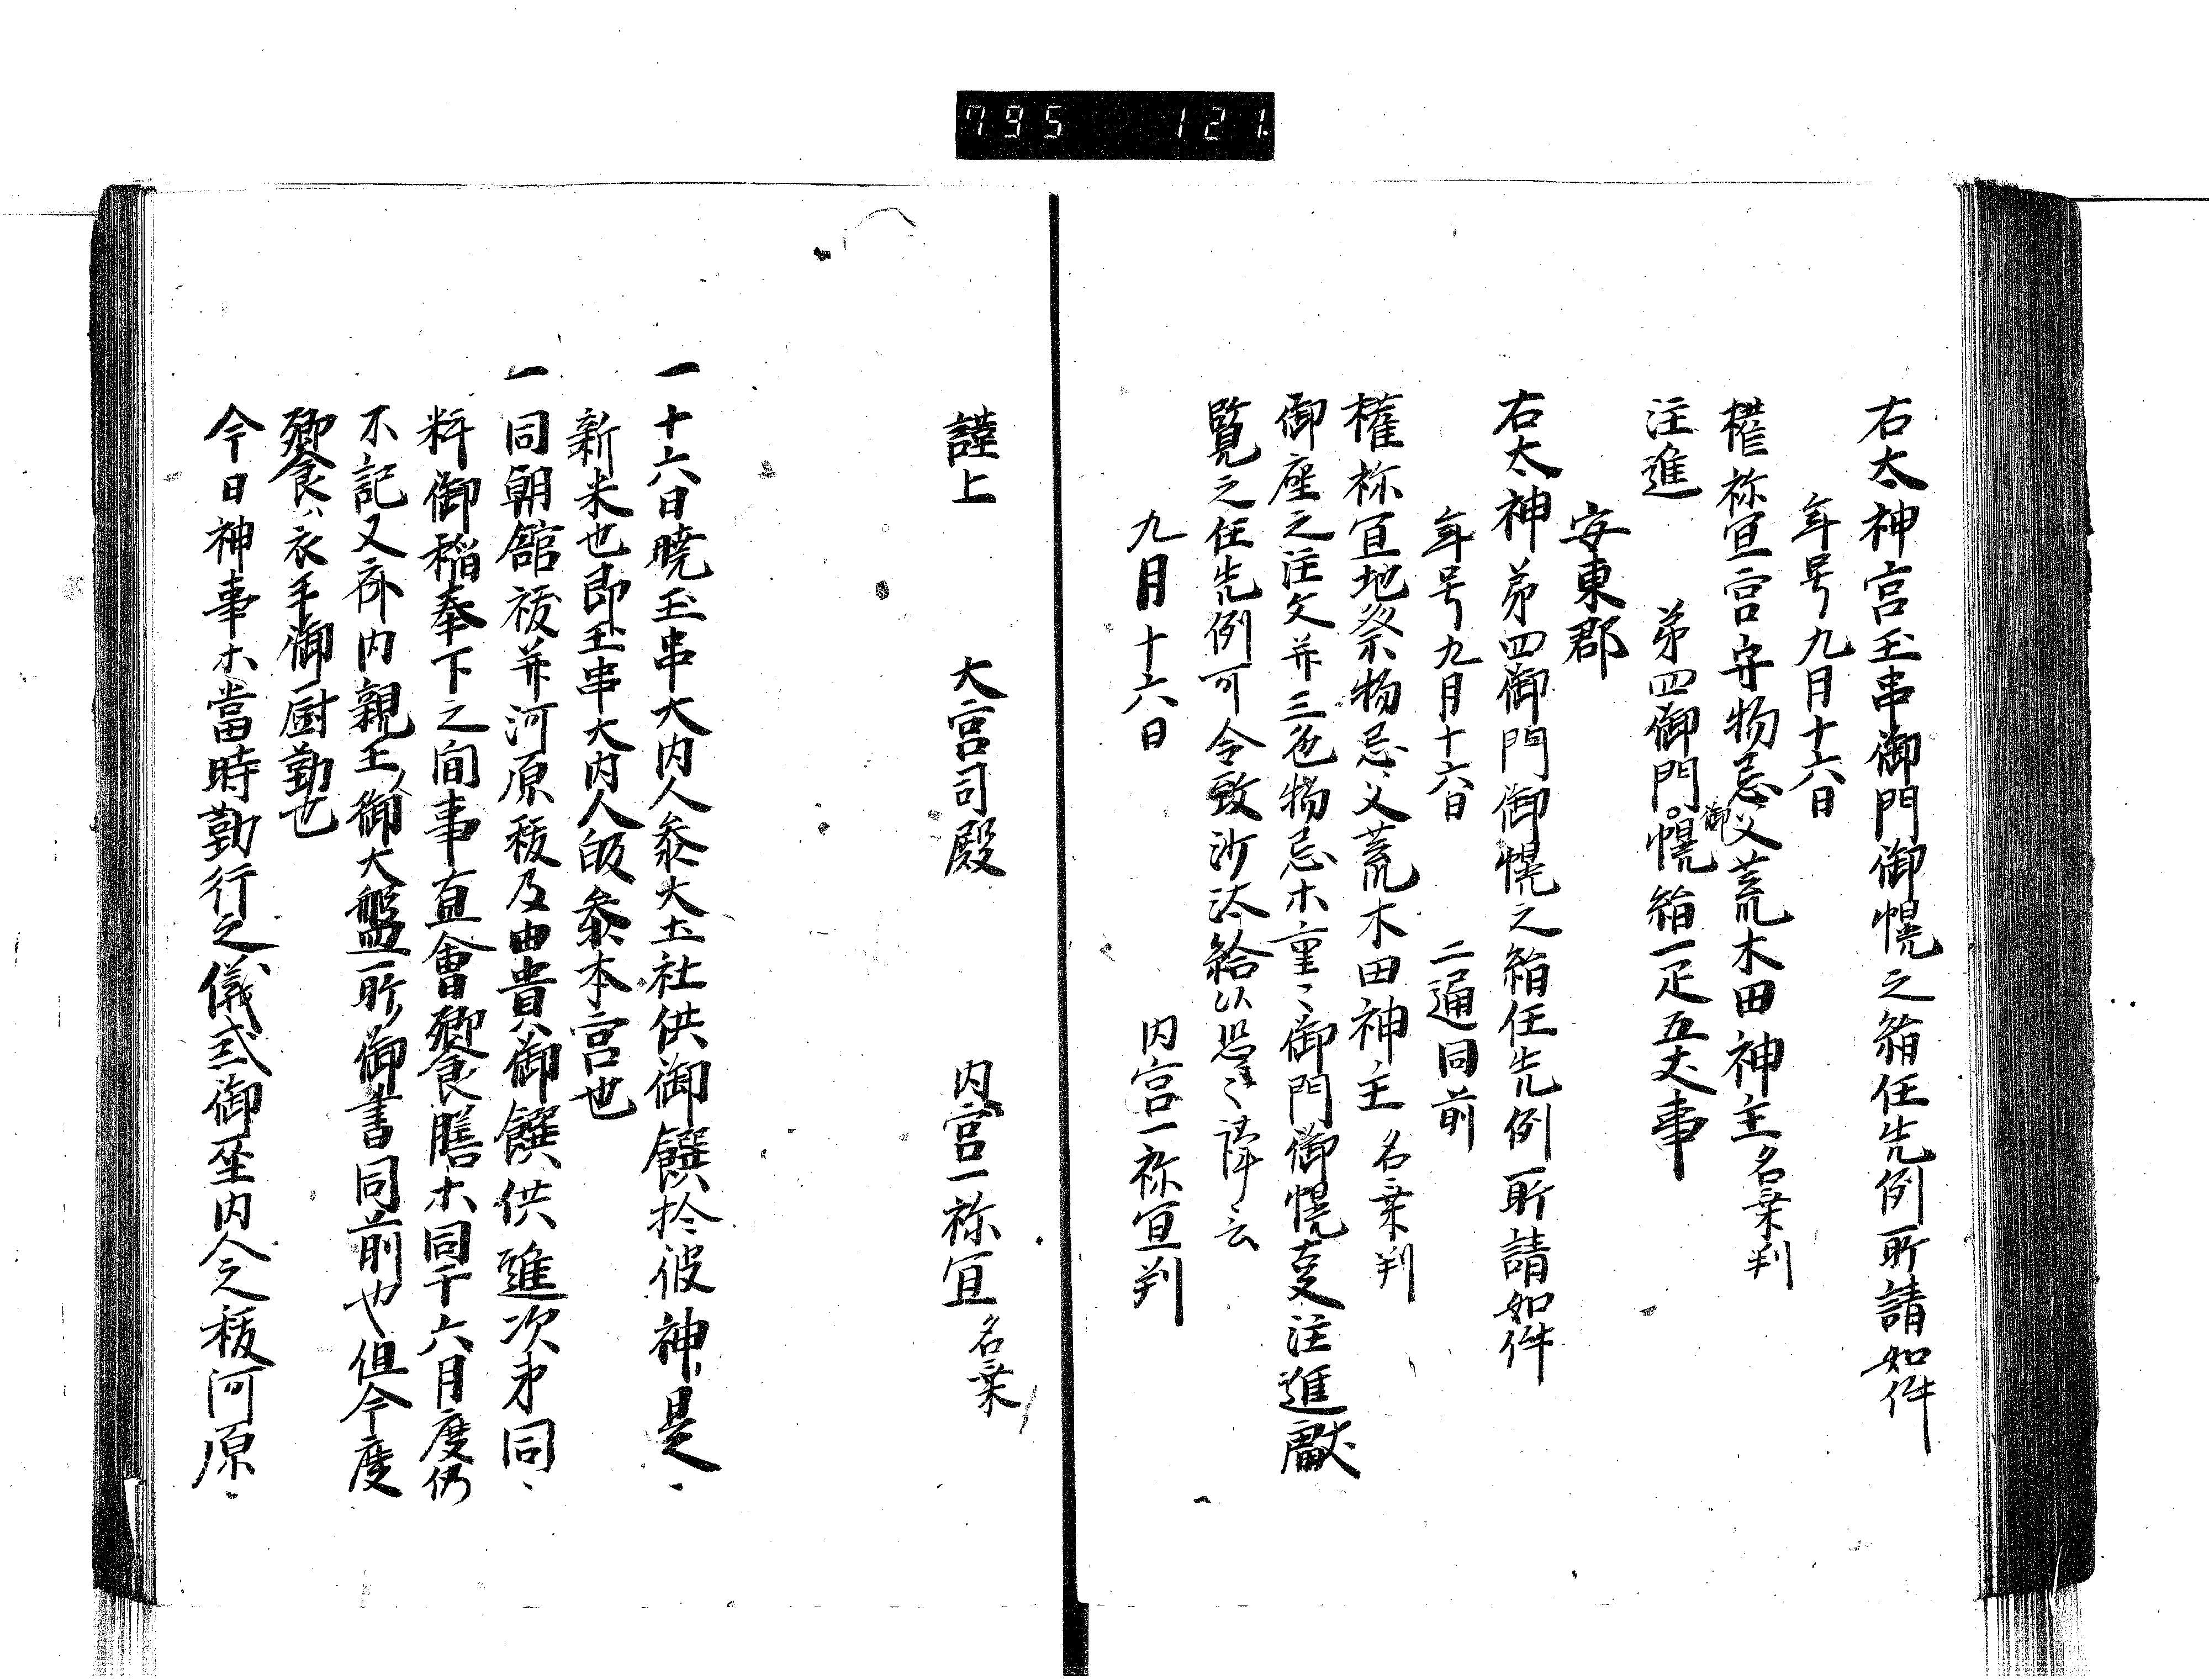 795 121
右太神宮玉串御門御幌之絹任先例所請如件
年号九月十六日
権祢宜宮守物忌父荒木田神主名乗判
注進 第四御門御幌絹一疋五丈事
安東郡
右太神第四御門御幌之絹任先例所請如件
年号九月十六日 二通同前
権祢宜地祭物忌父荒木田神主 名乗判
御座之注文并三色物忌木重〻御門御幌支注進獻
覧之任先例可令致沙汰給以恐〻謹云
九月十六日 内宮一祢宜判
謹上 大宮司殿 内宮一祢宜名乗
一十六日暁玉串大内人参大土社供御饌於彼神是
新米也即玉串大内人皈参本宮也
一同朝舘祓并河原祓及由貴御饌供進次第同
料御稲奉下之間事直會饗膳木同干六月度仍
不記又斎内親王御大盤所御書同前也但今度
饗衣手御厨勤也
今日神事木當時勤行之儀式御巫内人之祓河原